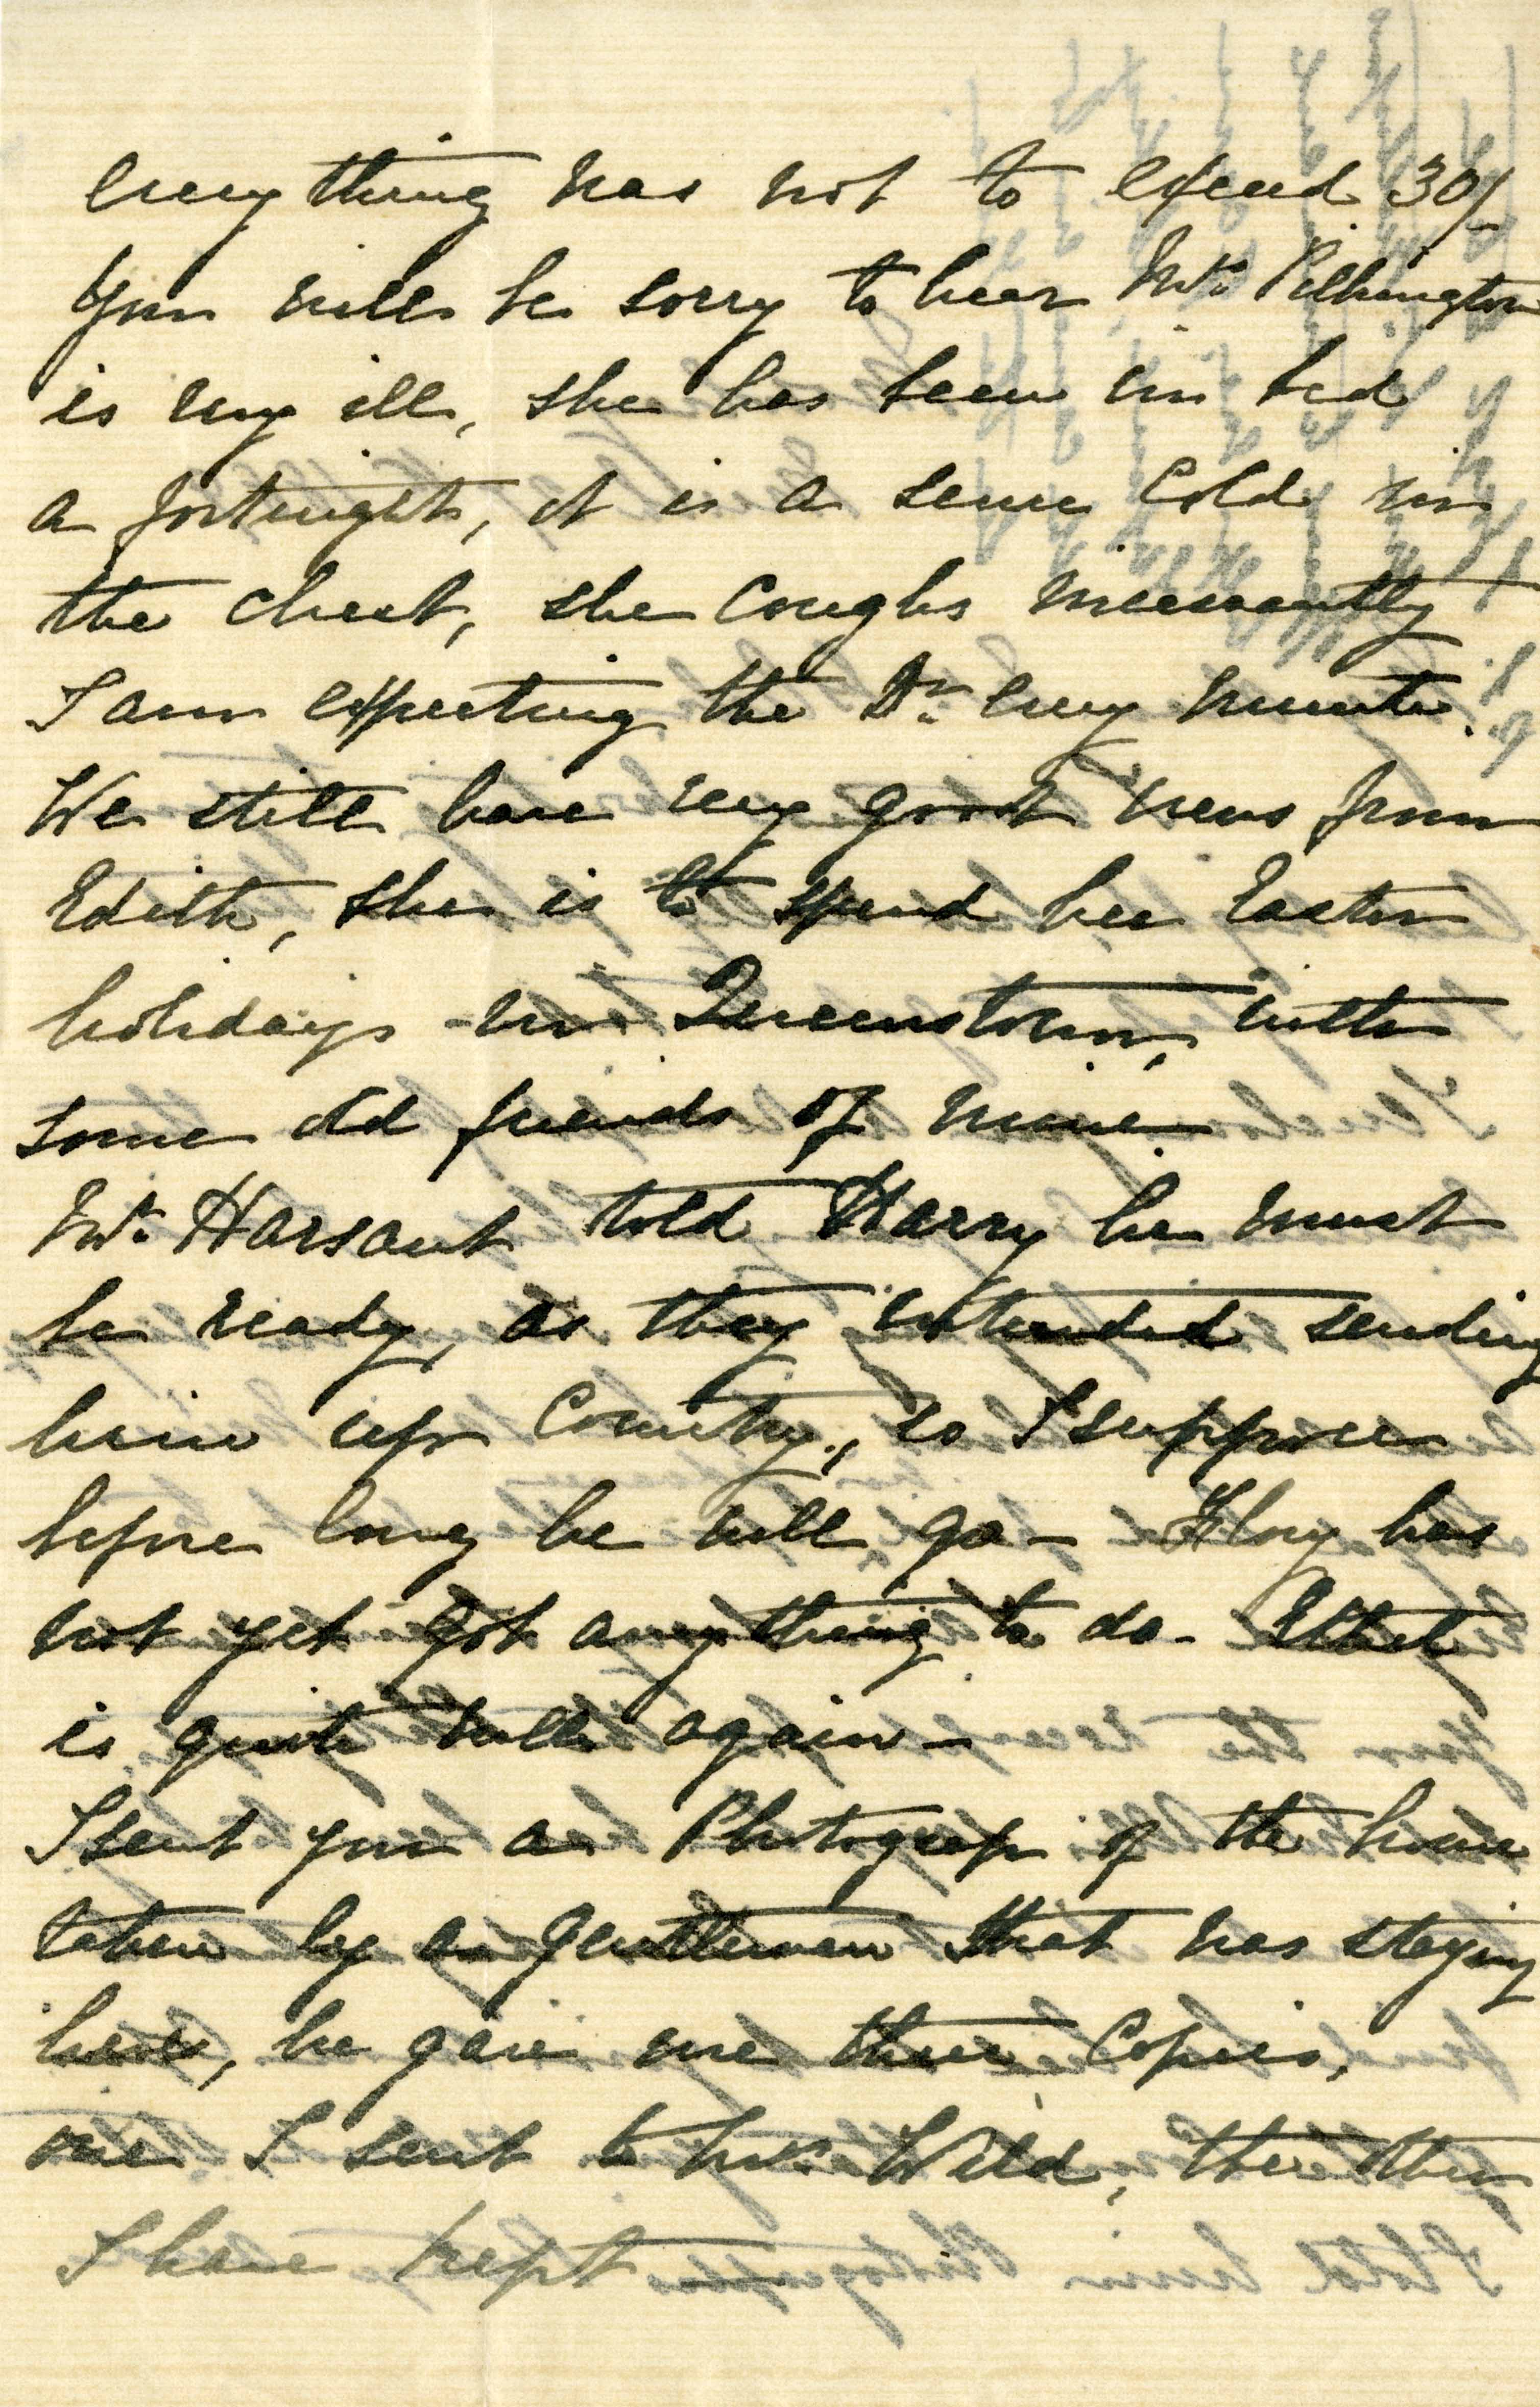 everything was not to exceed 30/-
You will be sorry to hear Mrs Pilkington
is very ill, she has been in bed
a fortnight, it is a severe Cold in
the chest, she Coughs incessantly
I am expecting the Dr. every minute.
We still have very good news from
Edith, she is to spend her Easter
holidays in Queenstown, with
some old friends of mine
Mr. Harsant told Harry he must
be ready, as they intended sending
him up Country, so I suppose
before long he will go - Flory has
not yet got anything to do - Ethel
is quite well again -
I sent you a Photograp of the house
taken by a gentleman that was staying
here, he gave me three Copies,
one I sent to Mrs. Wild, the other
I have kept